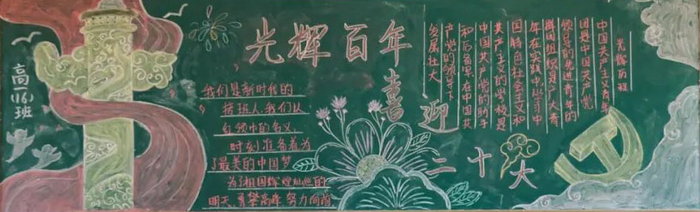 高一(16)班
光辉百年
我们是新时代的
接班人,我们从
红领巾的名义
时刻准备着为
了最美的中国梦
为了祖国辉煌灿烂的
明天,勇攀高峰 努力向前
喜迎
二十大
光辉历程
中国共产主义青年
团是中国共产党
领导的先进青年的
群团组织是广大青
年在实践中学习中
国特色社会主义和
共产主义的学校是
中国共产党的助手
和后备军,在中国共
产党的领导下
发展壮大